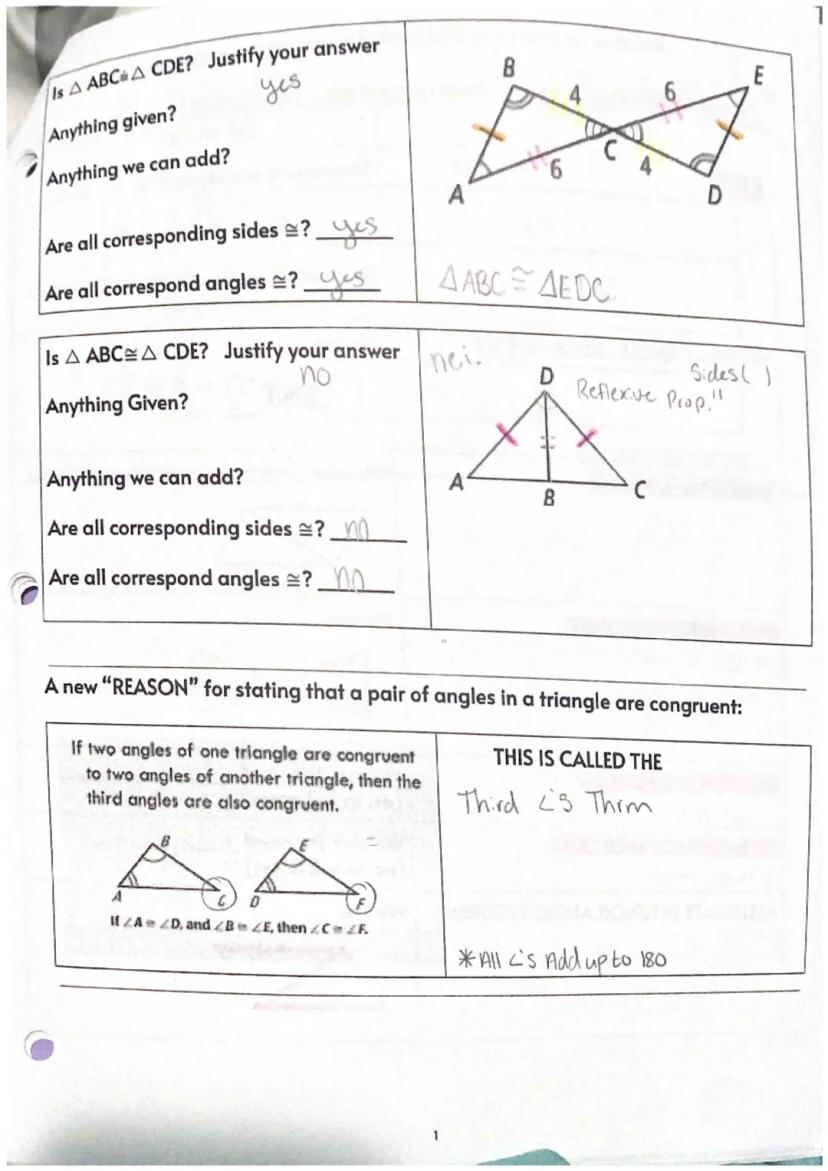 Is △ ABC≅△ CDE? Justify your answer
yes
Anything given?
Anything we can add?
Are all corresponding sides ≅? yes
Are all correspond angles ≅? yes
B
4
6
E
C
A
6
4
D
△ABC ≅ △EDC
Is △ ABC≅△ CDE? Justify your answer
no
Anything Given?
Anything we can add?
Are all corresponding sides ≅? no
Are all correspond angles ≅? no
nei.
Sides( )
D
Reflexive Prop."
A
B
C
A new “REASON” for stating that a pair of angles in a triangle are congruent:
If two angles of one triangle are congruent
to two angles of another triangle, then the
third angles are also congruent.
B
E
A
C
D
F
If ∠A ≅ ∠D, and ∠B ≅ ∠E, then ∠C ≅ ∠F.
THIS IS CALLED THE
Third ∠'s Thrm
*All ∠'s Add up to 180
1